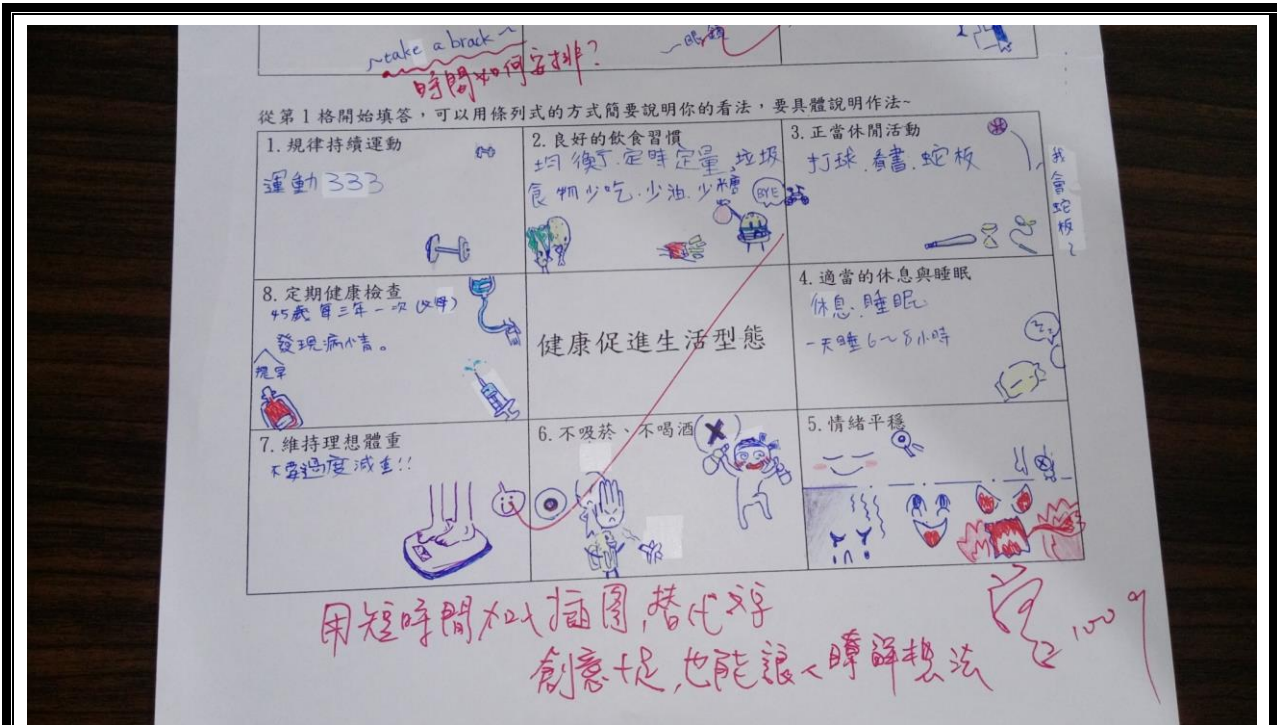 ~take a brack~
時間如何安排?
從第 1 格開始填答，可以用條列式的方式簡要說明你的看法，要具體說明作法~
1.規律持續運動
運動333
2.良好的飲食習慣
均衡.定時定量.垃圾
食物少吃.少油.少糖
BYE
3.正當休閒活動
打球.看書.蛇板
我會蛇板~
8.定期健康檢查
45歲每三年一次
發現病情。
健康促進生活型態
4.適當的休息與睡眠
休息:睡眠
一天睡6~8小時
7.維持理想體重
不要過度減重!!
6.不吸菸、不喝酒
5.情緒平穩
用短時間加以插圖,替代文字
創意十足,也能讓人瞭解想法
100